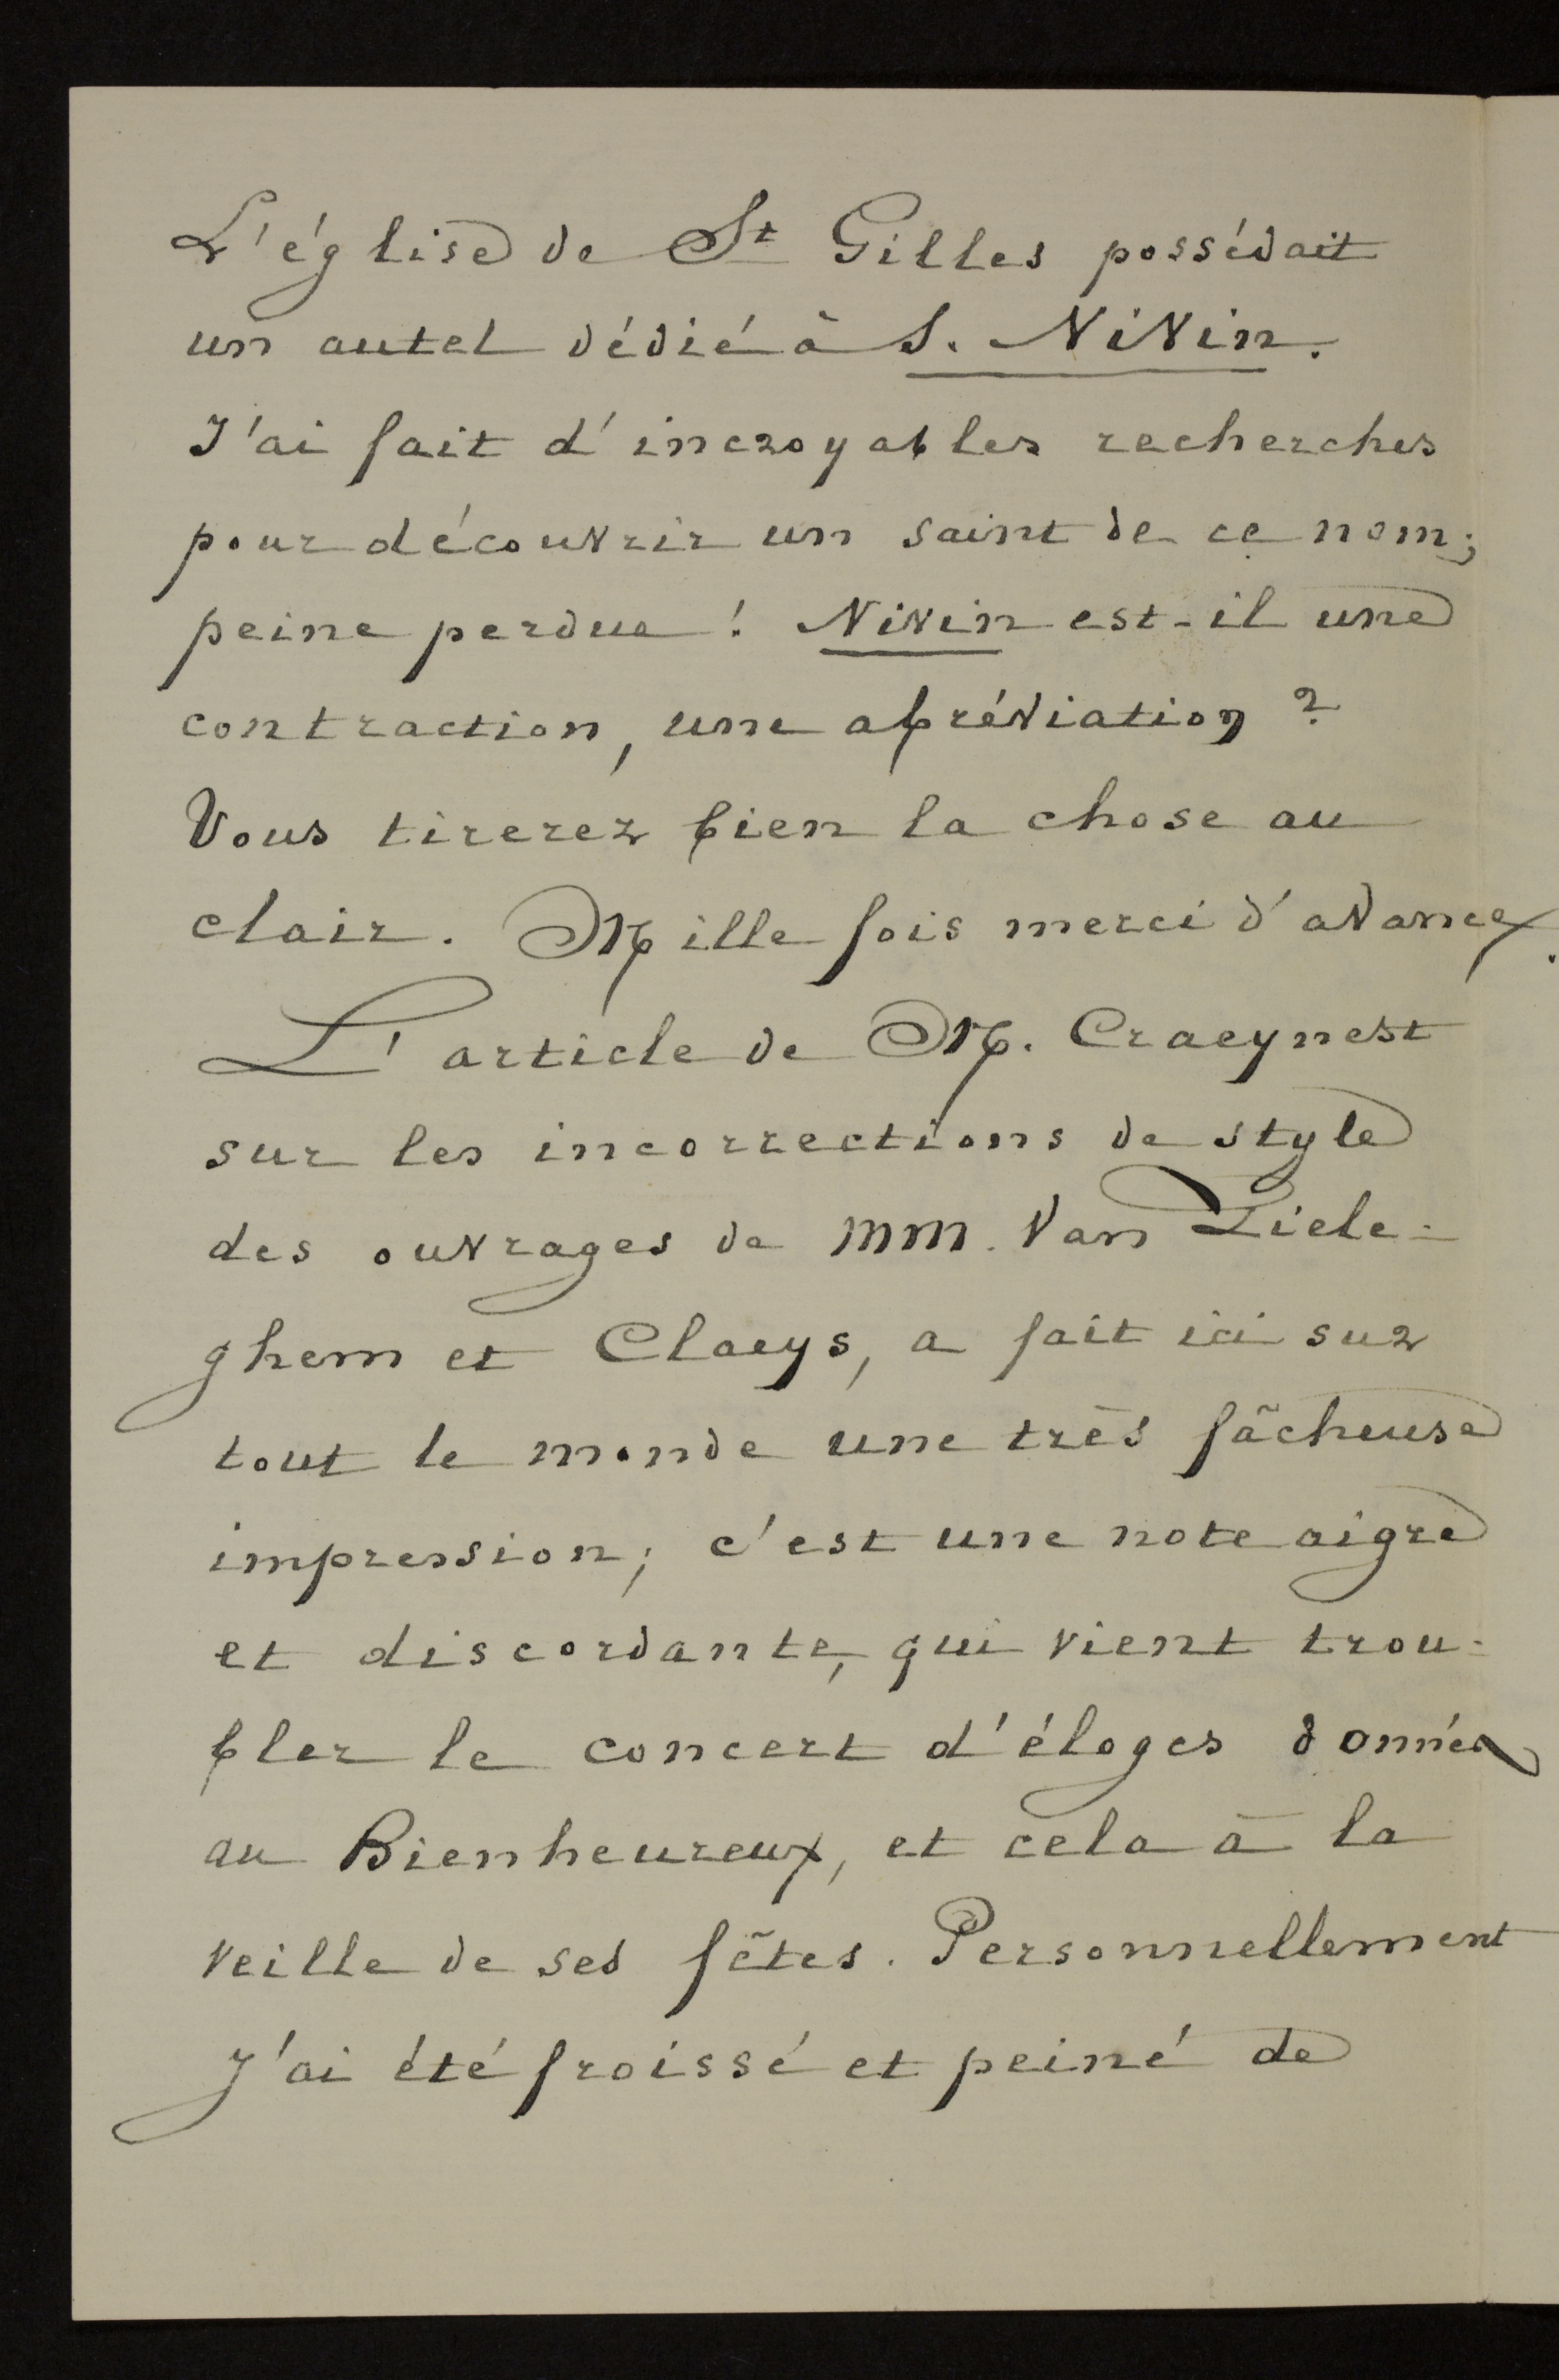 L'église de St Gilles possédait
un autel dédié à S. Nivin.
J'ai fait d'incroyables recherches
pour découvrir un saint de ce nom;
peine perdue! Nivin est-il une
contraction, une abréviation?
Vous tirerez bien la chose au
clair. Mille fois merci d'avance.
L'article de M. Craeynest
sur les incorrections de style
des ouvrages de MM. Van Ziele-
ghem et Claeys, a fait ici sur
tout le monde une très fâcheuse
impression; c'est une note aigre
et discordante, qui vient trou-
bler le concert d'éloges donnés
au Bienheureux, et cela à la
veille de ses fêtes. Personnellement
J'ai été froissé et peiné de